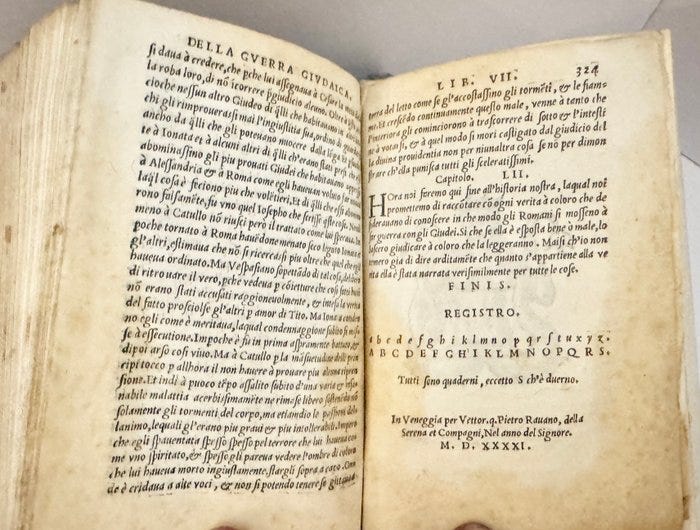 DELLA GVERRA GIVDAICA.
si daua à credere, che pche lui assegnaua à Cesare la
la roba loro, di nõ icorrere pgiudicio alcuno. Oltre à
cioche nessun altro Giudeo di qlli che habitauano in
chi gli rimprouerassi mai l'ingiustitia sua, ordino di
ancho da qlli che gli poteuano nuocere dalla lõga
te à Ionata et à alcuni altri di qlli ch'erano stati presi che
abominassino gli piu prouati Giudei che habitauano
à Alessandria & à Roma come egli haueuan voluto far
laql cosa è feciono piu che volẽtieri, Et di qlli che essi
rono falsamẽte, fu vno quel Iosepho che scrisse qste cose. Non di
meno à Catullo nõ riuscì però il trattato come lui speraua. Im
poche tornato à Roma hauẽdone menato seco legato Ionata
gl'altri, estimaua che nõ si ricercassi piu oltre quel che egli
haueua ordinato. Ma Vespasiano sopettãdo di tal cosa, deliberò
di ritrouare il vero, pche vedeua p cõietture che cosi fatti
nõ erano stati accusati raggioneuolmente, & intesa la verita
del fatto prosciolse gl'altri p amor di Tito. Ma Iona a condan
no egli come è meritaua, laqual condennaggione subito si
se à essecutione. Impoche è fu in prima aspramente battuto, &
dipoi arso cosi viuo. Ma à Catullo p la mãsuetudine delli prin
cipi tocco p allhora il non hauere à prouare piu alcuna ripren
sione. Et indi à puoco tẽpo assalito subito d'una varia & insa
nabile malattia acerbissimamẽte ne rimase libero sostenẽdo nõ
solamente gli tormenti del corpo, ma etiandio le passioni del
lanimo, lequali gl'erano piu graui & piu intollerabili. Impero
che egli spauentata spesso spesso pel terrore che lui haueua co
me vno spiritato, & spesso gli pareua vedere l'ombre di coloro
che lui haueua morto ingiustamente, stargli sopra a capo. On
de è cridaua a alte voci, & non si potendo tenere se gittaua
LIB. VII. 324
terra del letto come se gl'accostassino gli tormẽti, & le fiam-
me. Et crescẽdo continuamente questo male, venne à tanto che
l'interiora gli cominciorono à trascorrere di sotto & l'intesti
ne à votarsi, & à quel modo si mori castigato dal giudicio del
la diuina prouidentia non per niunaltra cosa se nõ per dimon
strare ch'ella punisca tutti gli sceleratissimi.
Capitolo. LII.
HOra noi faremo qui fine all'historia nostra, laqual noi
promettemo di raccõtare cõ ogni verità à coloro che de
siderauano di conoscere in che modo gli Romani si mosseno à
far guerra con gli Giudei. Si che se ella è esposta bene ò male, lo
lascero giudicare à coloro che la leggeranno. Mai si ch'io non
temero gia di dire arditamẽte che quanto s'appartiene alla ve
rita ella è stata narrata verisimilmente per tutte le cose.
FINIS.
REGISTRO.
a b c d e f g h i k l m n o p q r s t u x y z.
A B C D E F G H I K L M N O P Q R S.
Tutti sono quaderni, eccetto S ch'è duerno.
In Veneggia per Vettor. q. Pietro Rauano, della
Serena et Compagni, Nel anno del Signore.
M. D. XXXXI.